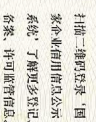 扫描二维码登录‘国
家企业信用信息公示
系统’了解更多登记、
备案、许可监管信息。